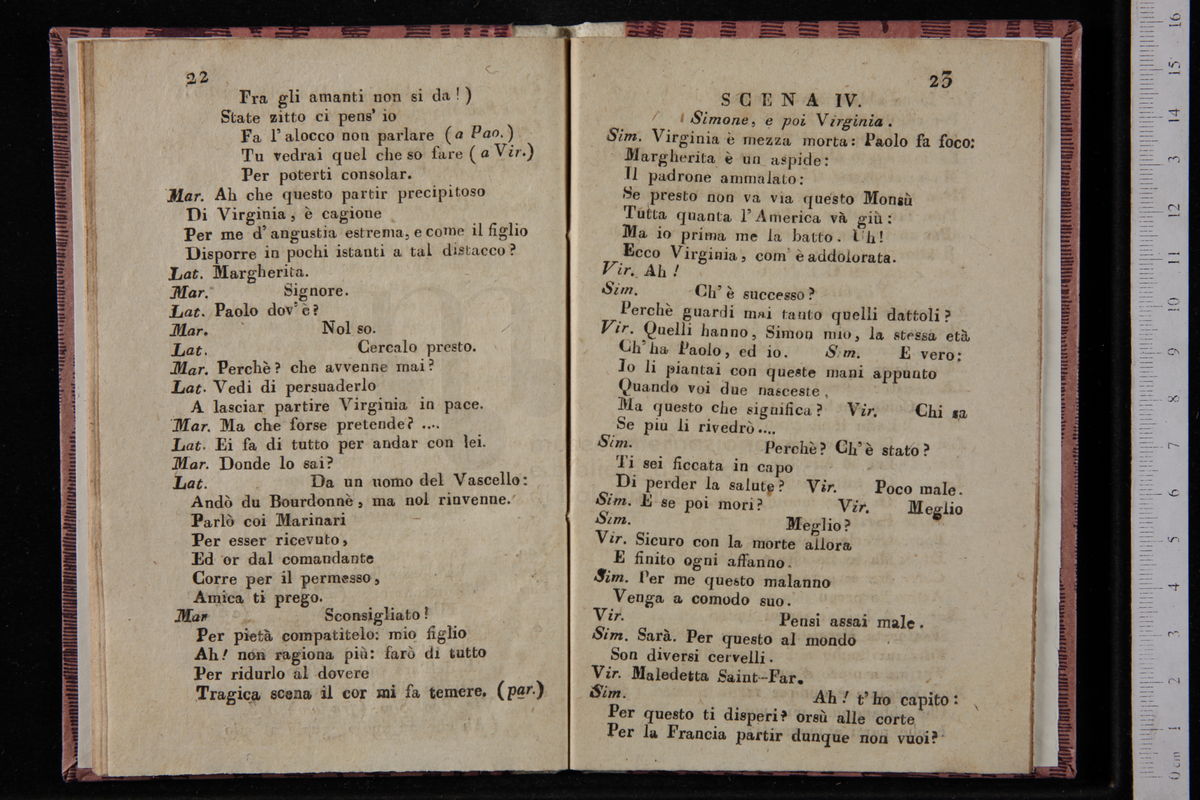 22
Fra gli amanti non si da!)
State zitto ci pens' io
Fa l'alocco non parlare (a Pao.)
Tu vedrai quel che so fare (a Vir.)
Per poterti consolar.
Mar. Ah che questo partir precipitoso
Di Virginia, è cagione
Per me d'angustia estrema, e come il figlio
Disporre in pochi istanti a tal distacco?
Lat. Margherita.
Mar. Signore.
Lat. Paolo dov'è?
Mar. Nol so.
Lat. Cercalo presto.
Mar. Perchè? che avvenne mai?
Lat. Vedi di persuaderlo
A lasciar partire Virginia in pace.
Mar. Ma che forse pretende? ....
Lat. Ei fa di tutto per andar con lei.
Mar. Donde lo sai?
Lat. Da un uomo del Vascello:
Andò du Bourdonnè, ma nol rinvenne.
Parlò coi Marinari
Per esser ricevuto,
Ed or dal comandante
Corre per il permesso,
Amica ti prego.
Mar Sconsigliato!
Per pietà compatitelo: mio figlio
Ah! non ragiona più: farò di tutto
Per ridurlo al dovere
Tragica scena il cor mi fa temere. (par.)
23
SCENA IV.
Simone, e poi Virginia.
Sim. Virginia è mezza morta: Paolo fa foco:
Margherita è un aspide:
Il padrone ammalato:
Se presto non va via questo Monsù
Tutta quanta l'America và giù:
Ma io prima me la batto. Uh!
Ecco Virginia, com' è addolorata.
Vir. Ah!
Sim. Ch'è successo?
Perchè guardi mai tanto quelli dattoli?
Vir. Quelli hanno, Simon mio, la stessa età
Ch'ha Paolo, ed io. Sim. E vero:
Io li piantai con queste mani appunto
Quando voi due nasceste,
Ma questo che significa? Vir. Chi sa
Se piu li rivedrò....
Sim. Perchè? Ch'è stato?
Ti sei ficcata in capo
Di perder la salute? Vir. Poco male.
Sim. E se poi mori? Vir. Meglio
Sim. Meglio?
Vir. Sicuro con la morte allora
E finito ogni affanno.
Sim. Per me questo malanno
Venga a comodo suo.
Vir. Pensi assai male.
Sim. Sarà. Per questo al mondo
Son diversi cervelli.
Vir. Maledetta Saint-Far.
Sim. Ah! t'ho capito:
Per questo ti disperi? orsù alle corte
Per la Francia partir dunque non vuoi?
0 cm 1 2 3 4 5 6 7 8 9 10 11 12 13 14 15 16